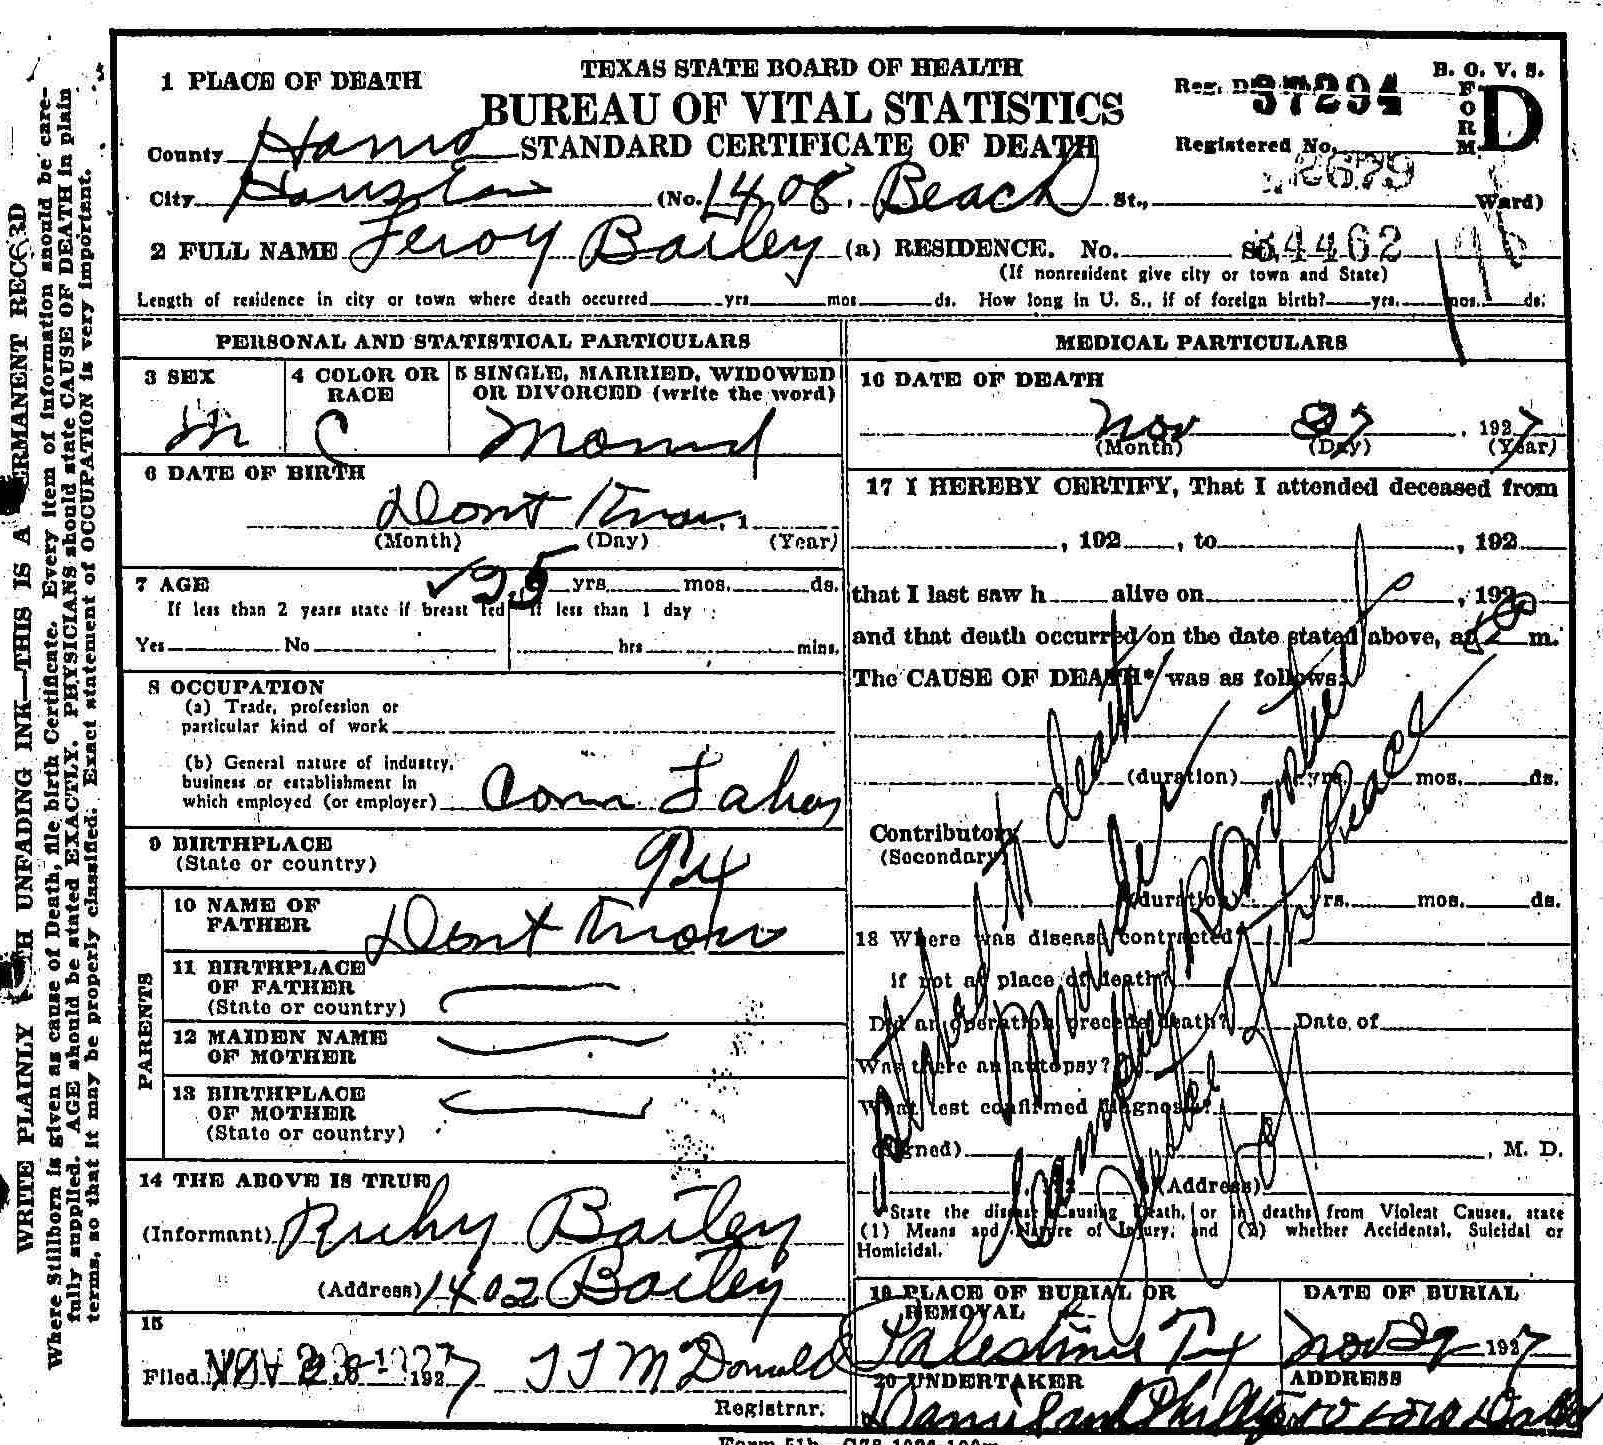 TEXAS STATE BOARD OF HEALTH
B. O. V. S.
1 PLACE OF DEATH
BUREAU OF VITAL STATISTICS
Reg. D 37294
FORM D
STANDARD CERTIFICATE OF DEATH
County Harris
Registered No. 2679
City Houston (No. 1408 Beach St., Ward)
2 FULL NAME Leroy Bailey (a) RESIDENCE. No. 54462
(If nonresident give city or town and State)
Length of residence in city or town where death occurred yrs mos ds. How long in U. S., if of foreign birth? yrs. mos. ds.
PERSONAL AND STATISTICAL PARTICULARS
3 SEX
M
4 COLOR OR RACE
C
5 SINGLE, MARRIED, WIDOWED
OR DIVORCED (write the word)
Married
6 DATE OF BIRTH
Dont Know
(Month) (Day) (Year)
7 AGE 25 yrs. mos. ds.
If less than 2 years state if breast fed If less than 1 day
Yes No hrs mins.
8 OCCUPATION
(a) Trade, profession or
particular kind of work
(b) General nature of industry,
business or establishment in
which employed (or employer) Com Labor
9 BIRTHPLACE
(State or country)
Tx
PARENTS
10 NAME OF
FATHER
Dont Know
11 BIRTHPLACE
OF FATHER
(State or country)
12 MAIDEN NAME
OF MOTHER
13 BIRTHPLACE
OF MOTHER
(State or country)
14 THE ABOVE IS TRUE
(Informant) Ruby Bailey
(Address) 1402 Bailey
15
Filed NOV 28 1927 1927 T J McDonald
Registrar.
MEDICAL PARTICULARS
16 DATE OF DEATH
Nov 27, 1927
(Month) (Day) (Year)
17 I HEREBY CERTIFY, That I attended deceased from
, 192 , to , 192
that I last saw h alive on , 192
and that death occurred on the date stated above, at m.
The CAUSE OF DEATH* was as follows:
(duration) yrs. mos. ds.
Contributory
(Secondary)
(duration) yrs. mos. ds.
18 Where was disease contracted
if not at place of death?
Did an operation precede death? Date of
Was there an autopsy?
What test confirmed diagnosis?
(Signed) , M. D.
(Address)
death
Murder
Justice
Peace
State the disease Causing Death, or in deaths from Violent Causes, state
(1) Means and Nature of Injury; and (2) whether Accidental, Suicidal or
Homicidal.
19 PLACE OF BURIAL OR
REMOVAL
Palestine Tx
DATE OF BURIAL
Nov 29 1927
20 UNDERTAKER
ADDRESS
WRITE PLAINLY WITH UNFADING INK—THIS IS A PERMANENT RECORD
Where Stillborn is given as cause of Death, file birth Certificate. Every item of information should be care-
fully supplied. AGE should be stated EXACTLY. PHYSICIANS should state CAUSE OF DEATH in plain
terms, so that it may be properly classified. Exact statement of OCCUPATION is very important.